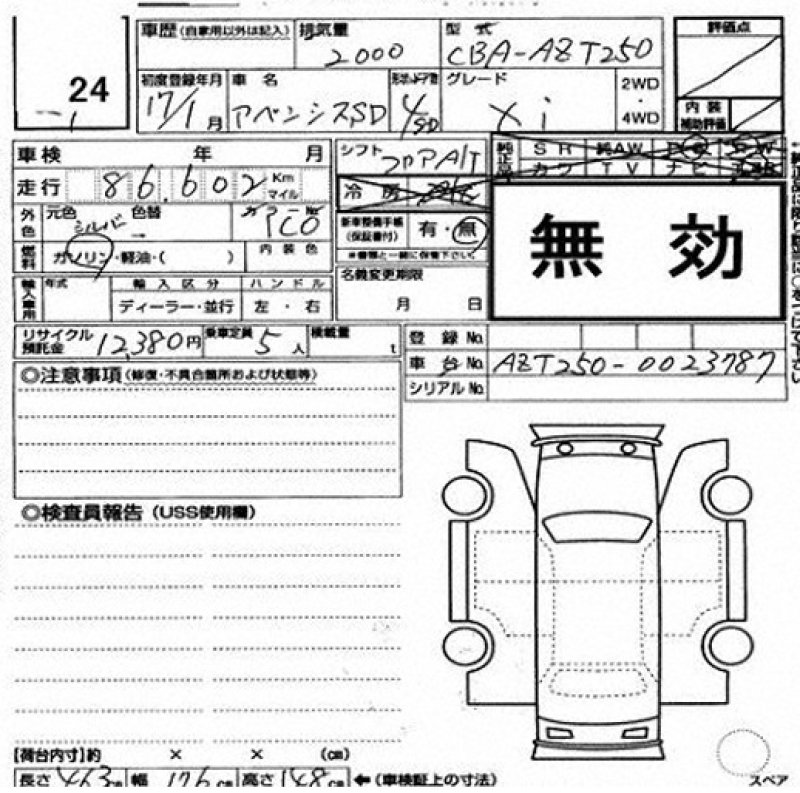 24
車歴(自家用以外は記入) 排気量 2000 型式 CBA-AZT250 評価点
初度登録年月 17/1月 車名 アベンシスSD 形状・ドア数 4SD グレード Xi 2WD・4WD 内装補助評価
車検 年 月 シフト フロアA/T 純正品 SR 純AW PS PW
走行 86,602 Km マイル 冷房 カワ TV ナビ
外色 元色 シルバー 色替 → カラーNo. 1C0 新車整備手帳(保証書付) 有・無 無効
燃料 ガソリン・軽油・( ) 内装色 ※書類と一緒に保管下さい。
輸入車用 年式 輸入区分 ディーラー・並行 ハンドル 左・右 名義変更期限 月 日
リサイクル預託金 12,380円 乗車定員 5人 積載量 t 登録No.
車台No. AZT250-0023787
シリアルNo.
◎注意事項(修復・不具合箇所および状態等)
◎検査員報告(USS使用欄)
【荷台内寸】約 × × (cm)
長さ463cm 幅176cm 高さ148cm ←(車検証上の寸法)
スペア